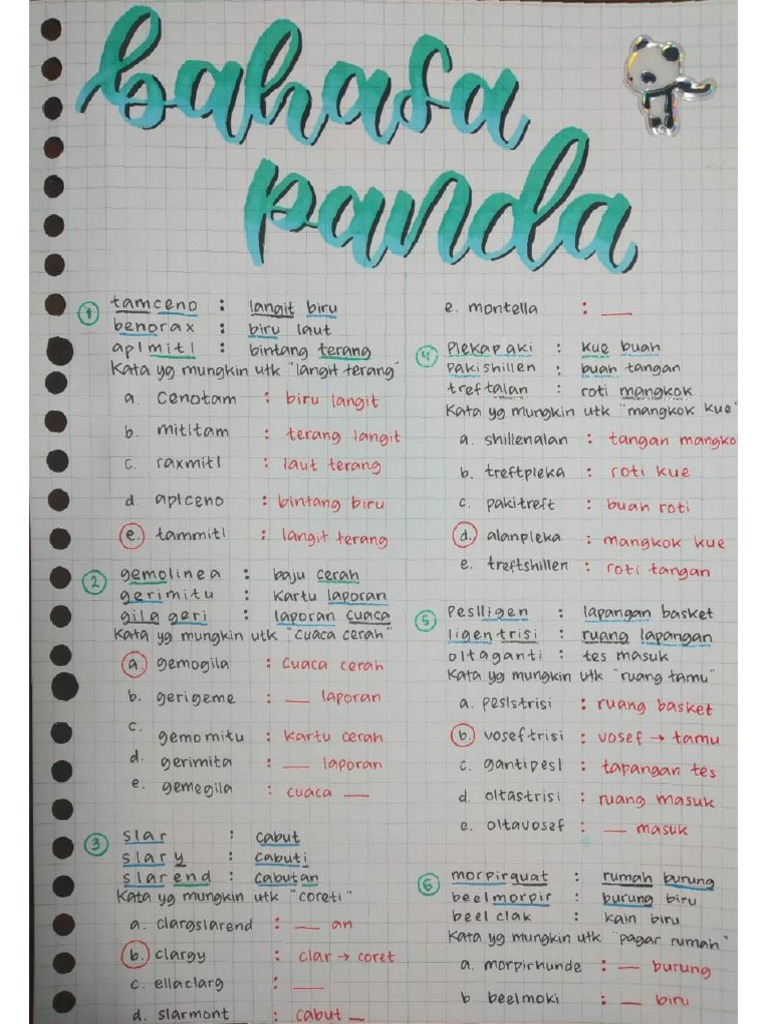 bahasa
panda
1 tamceno : langit biru
benorax : biru laut
aplmitl : bintang terang
Kata yg mungkin utk "langit terang"
a. cenotam : biru langit
b. mitltam : terang langit
c. raxmitl : laut terang
d. aplceno : bintang biru
e. tammitl : langit terang
2 gemolinea : baju cerah
gerimitu : kartu laporan
gila geri : laporan cuaca
Kata yg mungkin utk "cuaca cerah"
a. gemogila : cuaca cerah
b. gerigeme : __ laporan
c. gemomitu : kartu cerah
d. gerimita : __ laporan
e. gemegila : cuaca __
3 slar : cabut
slary : cabuti
slarend : cabutan
Kata yg mungkin utk "coreti"
a. clargslarend : __ an
b. clargy : clar → coret
c. ellaclarg : __
d. slarmont : cabut __
e. montella : __
4 plekapaki : kue buah
pakishillen : buah tangan
treftalan : roti mangkok
Kata yg mungkin utk "mangkok kue"
a. shillenalan : tangan mangko
b. treftpleka : roti kue
c. pakitreft : buah roti
d. alanpleka : mangkok kue
e. treftshillen : roti tangan
5 peslligen : lapangan basket
ligentrisi : ruang lapangan
oltaganti : tes masuk
Kata yg mungkin utk "ruang tamu"
a. peslstrisi : ruang basket
b. voseftrisi : vosef → tamu
c. gantipesl : tapangan tes
d. oltastrisi : ruang masuk
e. oltavosef : __ masuk
6 morpirquat : rumah burung
beelmorpir : burung biru
beel clak : kain biru
Kata yg mungkin utk "pagar rumah"
a. morpirhunde : __ burung
b. beelmoki : __ biru